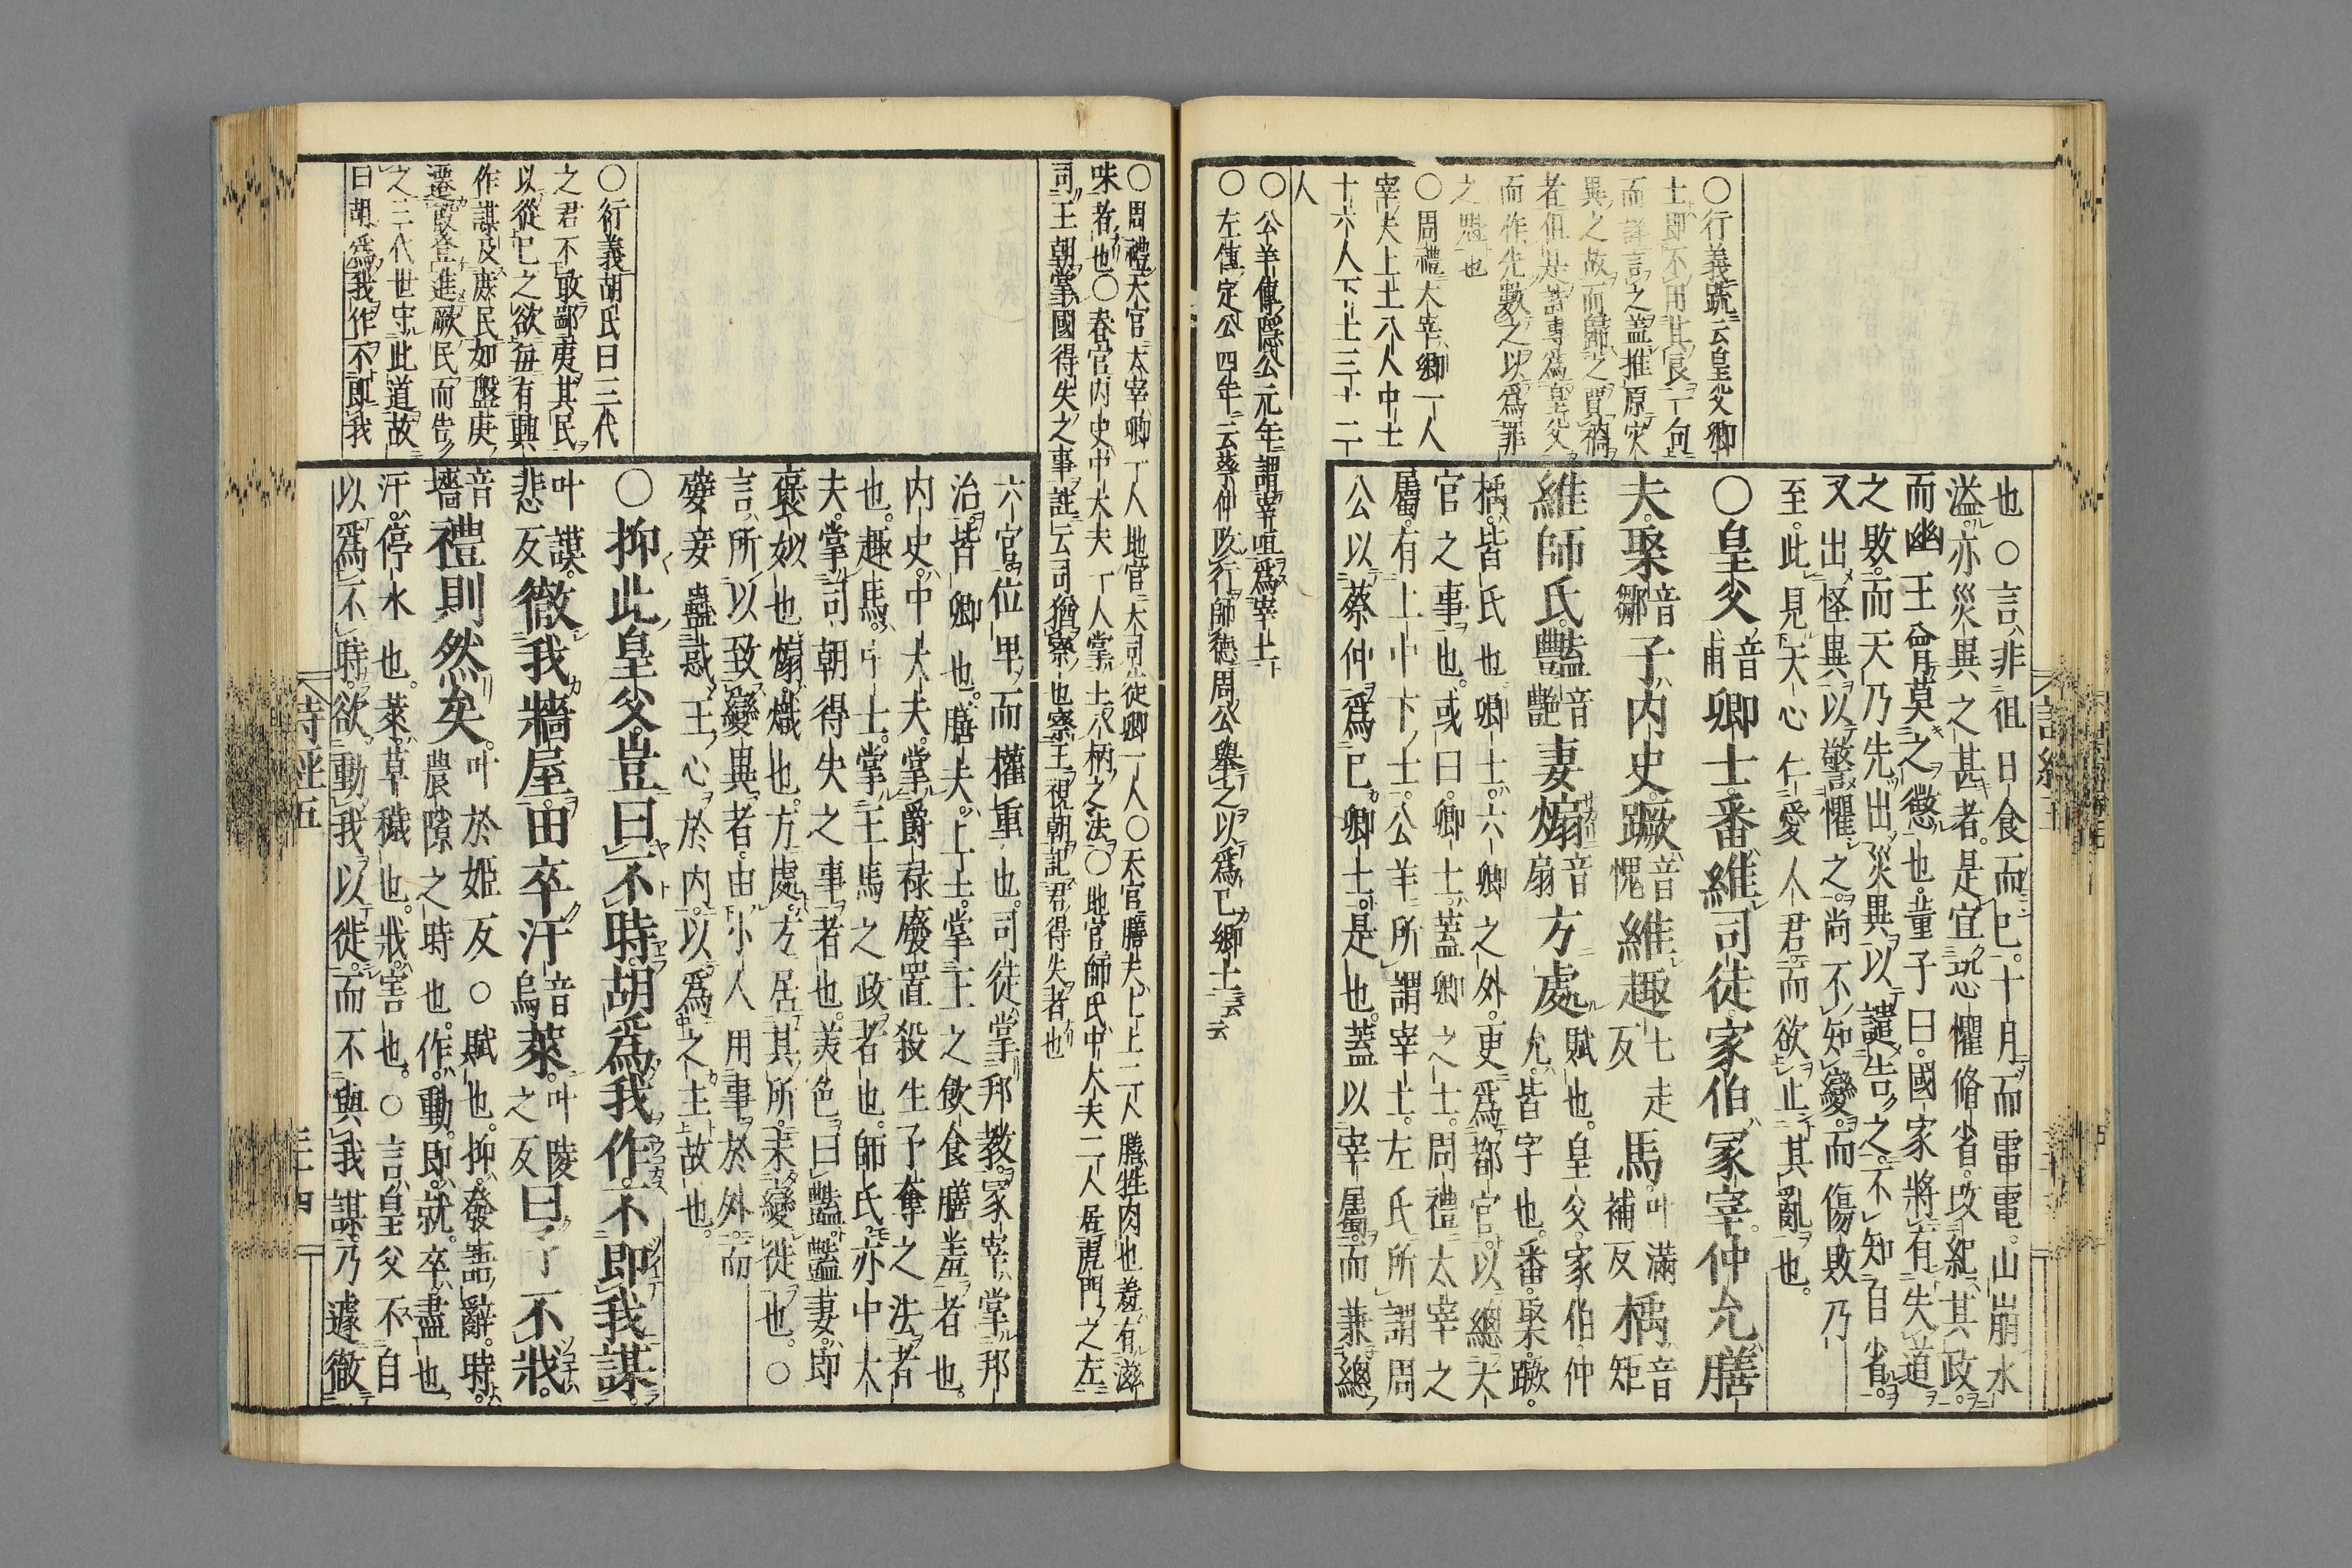 ○行義疏云皇父卿
士即不用其良一句
而詳言之蓋推原灾
異之故而歸之買禍
者但是詩專爲皇父
而作先數之以爲罪
之魁也
○周禮太宰卿一人
宰夫上士八人中士
十六人下士三十二
人
○公羊傳隱公元年謂宰咺爲宰士
○左傳定公四年云蔡仲改行師德周公舉之以爲已卿士云云
詩經五
也○言非徂日食而已。十月而雷電。山崩水
溢。亦災異之甚者。是宜恐懼脩省。改紀其政。
而幽王曾莫之懲也。董子曰。國家將有失道
之敗。而天乃先出災異以譴告之。不知自省。
又出怪異以警懼之。尚不知變。而傷敗乃
至。此見天心仁愛人君。而欲止其亂也。
○皇父音甫卿士。番維司徒。家伯冢宰。仲允膳
夫。聚音鄒子内史。蹶音愧維趣七走反馬。叶滿補反楀音矩
維師氏。豔音艷妻煽音扇方處。賦也。皇父。家伯。仲允。皆字也。番。聚。蹶。
楀。皆氏也。卿士。六卿之外。更爲都官。以總六
官之事也。或曰。卿士。蓋卿之士。周禮太宰之
屬。有上中下士。公羊所謂宰士。左氏所謂周
公以蔡仲爲已卿士。是也。蓋以宰屬。而兼總
○周禮天官太宰卿一人地官大司徒卿一人○天官膳夫上士二人膳牲肉也羞有滋
味者也○春官内史中大夫一人掌王八柄之法○地官師氏中大夫二人居虎門之左
司王朝掌國得失之事註云司猶察也察王視朝記君得失者也
六官。位卑而權重也。司徒。掌邦教。冢宰。掌邦
治。皆卿也。膳夫。上士。掌王之飲食膳羞者也。
内史。中大夫。掌爵祿廢置殺生予奪之法者
也。趣馬。中士。掌王馬之政者也。師氏。亦中大
夫。掌司朝得失之事者也。美色曰豔。豔妻。即
褒姒也。煽。熾也。方處。方居其所。未變徙也。○
言所以致變異者。由小人用事於外。而
嬖妾蠱惑王心於内。以爲之主故也。
○衍義胡氏曰三代
之君不敢鄙夷其民
以從已之欲每有興
作謀及庶民如盤庚
遷殷登進厥民而告
之三代世守此道故
曰胡爲我作不即我
○抑此皇父。豈曰不時。胡爲我作。不即我謀。
叶謨悲反徹我牆屋。田卒汙音烏萊。叶陵之反曰予不戕。
音墻禮則然矣。叶於姬反○賦也。抑。發語辭。時。
農隙之時也。作。動。即。就。卒。盡也。
汙。停水也。萊。草穢也。戕。害也。○言。皇父不自
以爲不時。欲動我以徙。而不與我謀。乃遽徹
詩經五
三十四